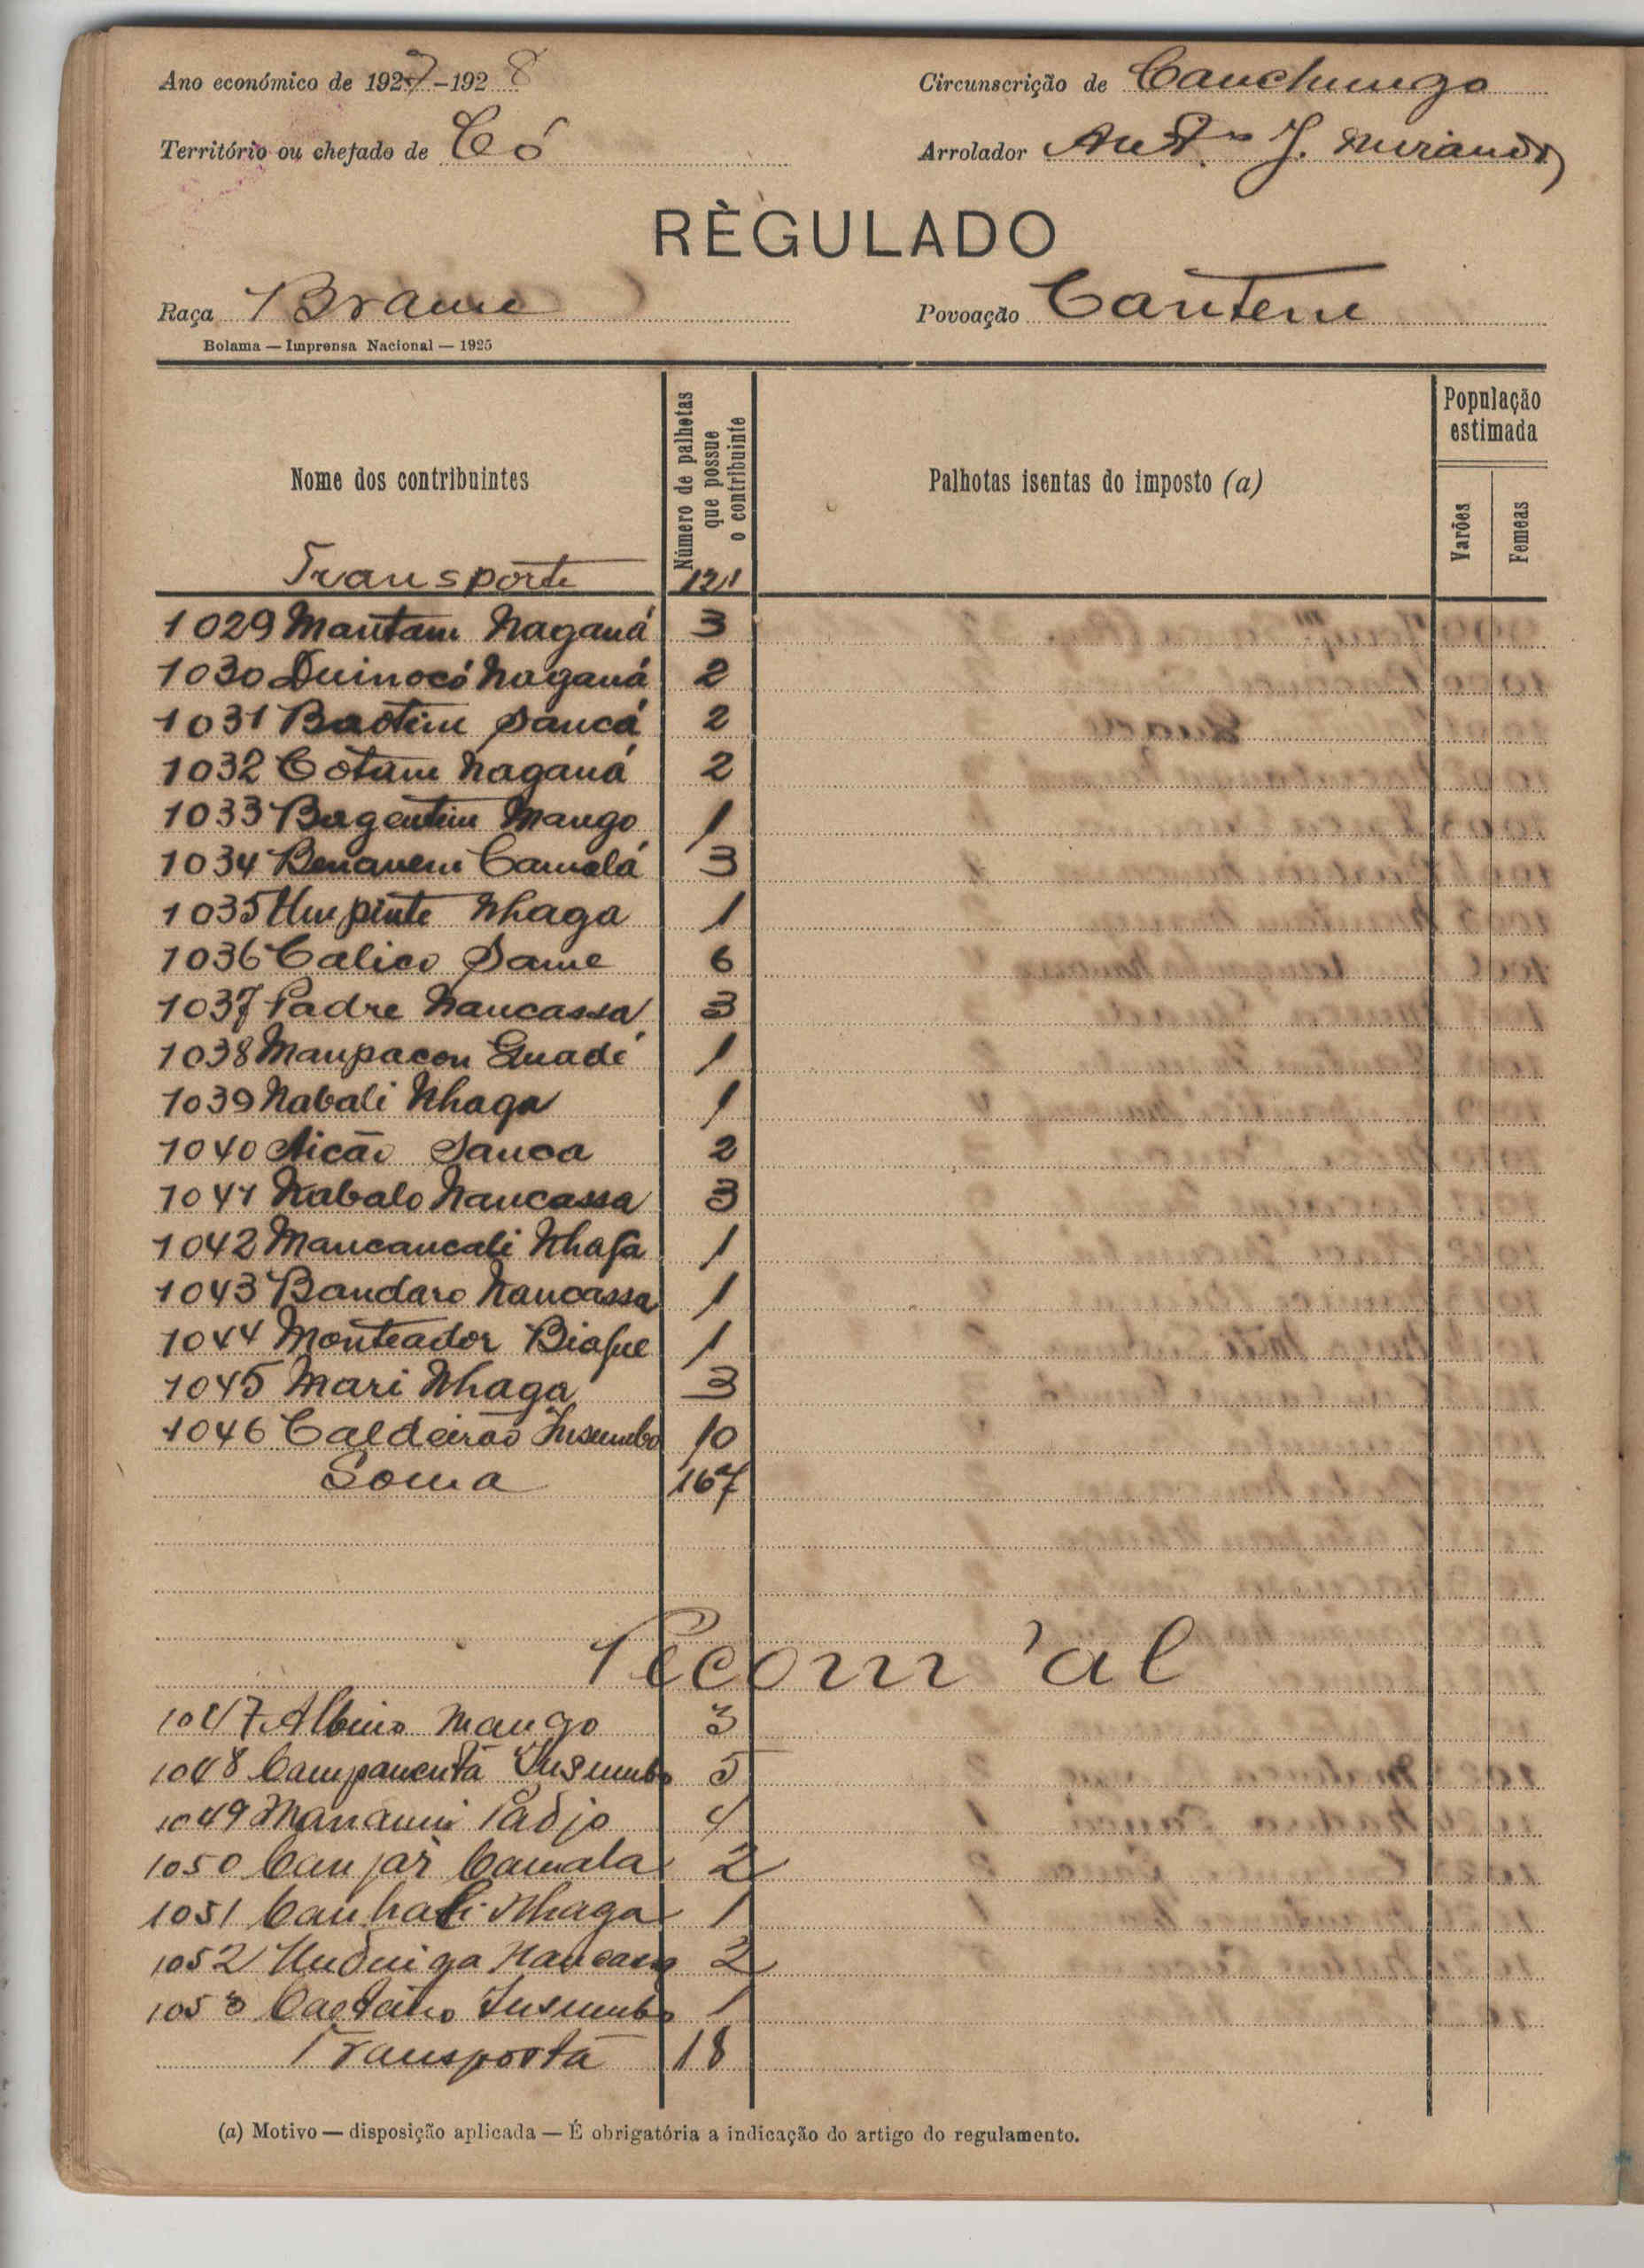 Ano económico de 1927-1928 Circunscrição de Canchungo
Território ou chefado de Có Arrolador Ant.º J. Miranda
RÈGULADO
Raça Brame Povoação Cantene
Bolama — Imprensa Nacional — 1925
Nome dos contribuintes Número de palhotas que possue o contribuinte Palhotas isentas do imposto (a) População estimada Varões Femeas
Transporte 121
1029 Mantam Naganá 3
1030 Quinocó Naganá 2
1031 Baotim Sancá 2
1032 Cótame Naganá 2
1033 Bagentim Mango 1
1034 Benanem Camalá 3
1035 Umpinte Nhaga 1
1036 Calico Same 6
1037 Padre Nancassa 3
1038 Manpacon Quadé 1
1039 Nabali Nhaga 1
1040 Aicão Sanca 2
1041 Nabalo Nancassa 3
1042 Mancancali Nhafa 1
1043 Bandaro Nancassa 1
1044 Monteador Biafue 1
1045 Mari Nhaga 3
1046 Caldeirão Insumbo 10
Soma 167
Pecom 'al
1047 Albino Mango 3
1048 Campanenta Insumbo 5
1049 Manami Padjo 4
1050 Canjar Camala 2
1051 Canhali Nhaga 1
1052 Nancassa 2
1053 Caetano Insumbo 1
Transporta 18
(a) Motivo — disposição aplicada — É obrigatória a indicação do artigo do regulamento.